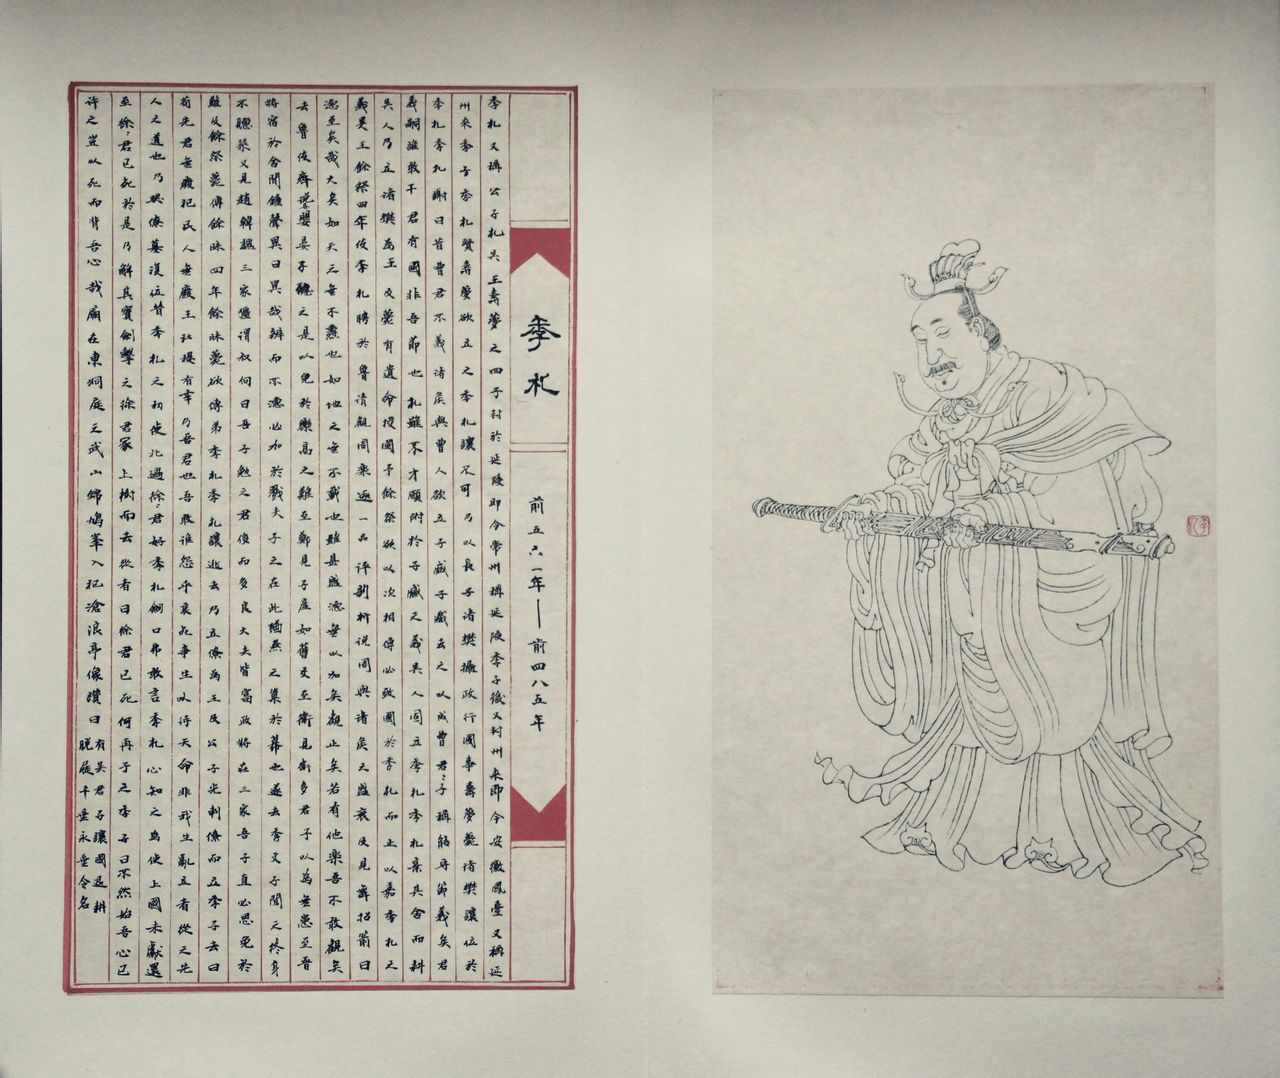 季札
前五六一年——前四八五年
季札又稱公子札吳王壽夢之四子封於延陵即今常州稱延陵季子後又封州来即今安徽鳳臺又稱延
州来季子季札賢壽夢欲立之季札讓不可乃以長子诸樊攝政行國事壽夢薨诸樊讓位於
季札季札謝曰昔曹君不義诸矦與曹人欲立子臧子臧去之以成曹君君子稱能守節義矣君
義嗣誰敢干君有國非吾節也札雖不才願附於子臧之義吳人固立季札季札棄其舍而耕
吳人乃立诸樊為王及薨有遺命授國予餘祭欲以次相傳必致國於季札而止以嘉季札之
義吳王餘祭四年使季札聘於魯请觀周樂逐一品評剖析说周與诸矦之盛衰及見舞招箾曰
德至矣哉大矣如天之無不燾也如地之無不載也雖甚盛德無以加矣觀止矣若有他樂吾不敢觀矣
去魯使齊说晏嬰晏子聽之是以免於欒高之難至鄭見子産如舊交至衛見衛多君子以為無患至晉
將宿於舍聞鐘聲異曰異哉辨而不德必加於戮夫子之在此猶燕之巢於幕也遂去季文子聞之终身
不聽琴又見趙韓魏三家強謂叔向曰吾子勉之君侈而多良大夫皆富政將在三家吾子直必思免於
難及餘祭薨傳餘昧四年餘昧薨欲傳弟季札季札讓逃去乃立僚為王及公子光刺僚而立季子去曰
苟先君無廢祀民人無廢主社稷有奉乃吾君也吾敢谁怨乎哀死事生以待天命非我生亂立者從之先
人之道也乃哭僚墓復位昔季札之初使北過徐徐君好季札劍口弗敢言季札心知之為使上國未獻還
至徐徐君已死於是乃解其寶劍繫之徐君冢上樹而去從者曰徐君已死何再予之季子曰不然始吾心已
许之豈以死而背吾心哉廟在東洞庭王武山錦鳩峯入祀滄浪亭像讚曰有吳君子讓國退耕
脱屣千乘永垂令名